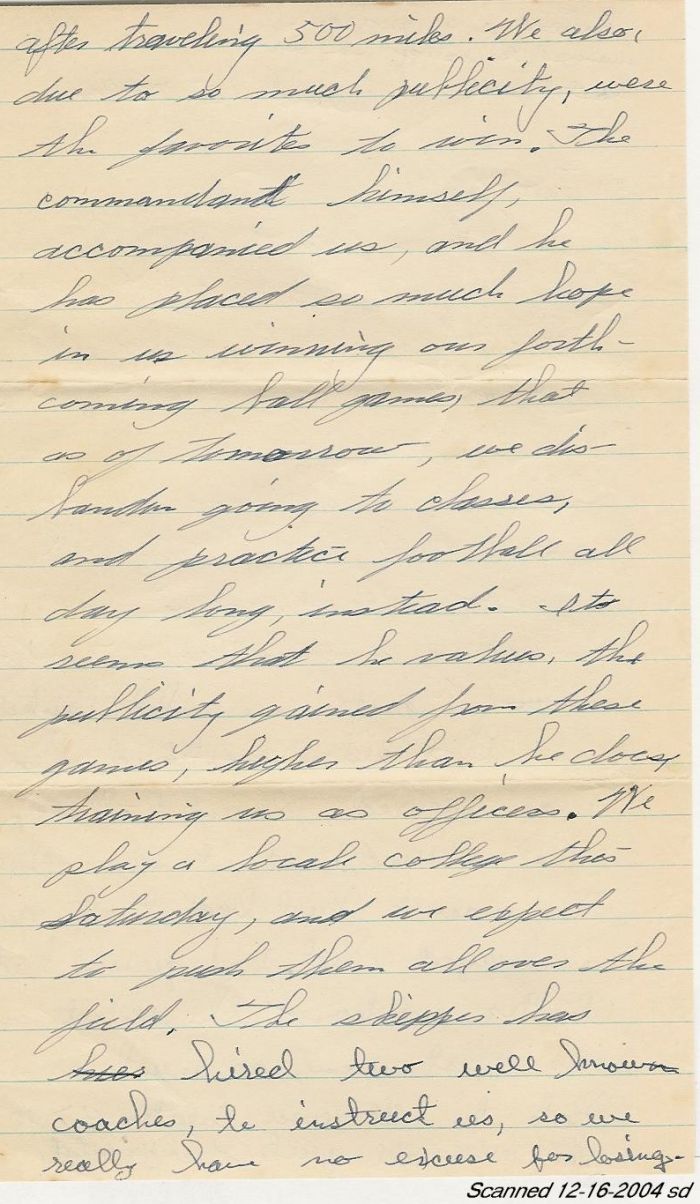 after traveling 500 miles. We also,
due to so much publicity, were
the favorites to win. The
commandant himself,
accompanied us, and he
has placed so much hope
in us winning our forth-
coming ball games, that
as of tomorrow, we dis-
banden going to classes,
and practice football all
day long, instead. It
seems that he values, the
publicity gained from these
games, higher than he does,
training us as officers. We
play a locale college this
Saturday, and we expect
to push them all over the
field. The skipper has
hired two well known
coaches, to instruct us, so we
really have no excuse for losing.
Scanned 12-16-2004 sd